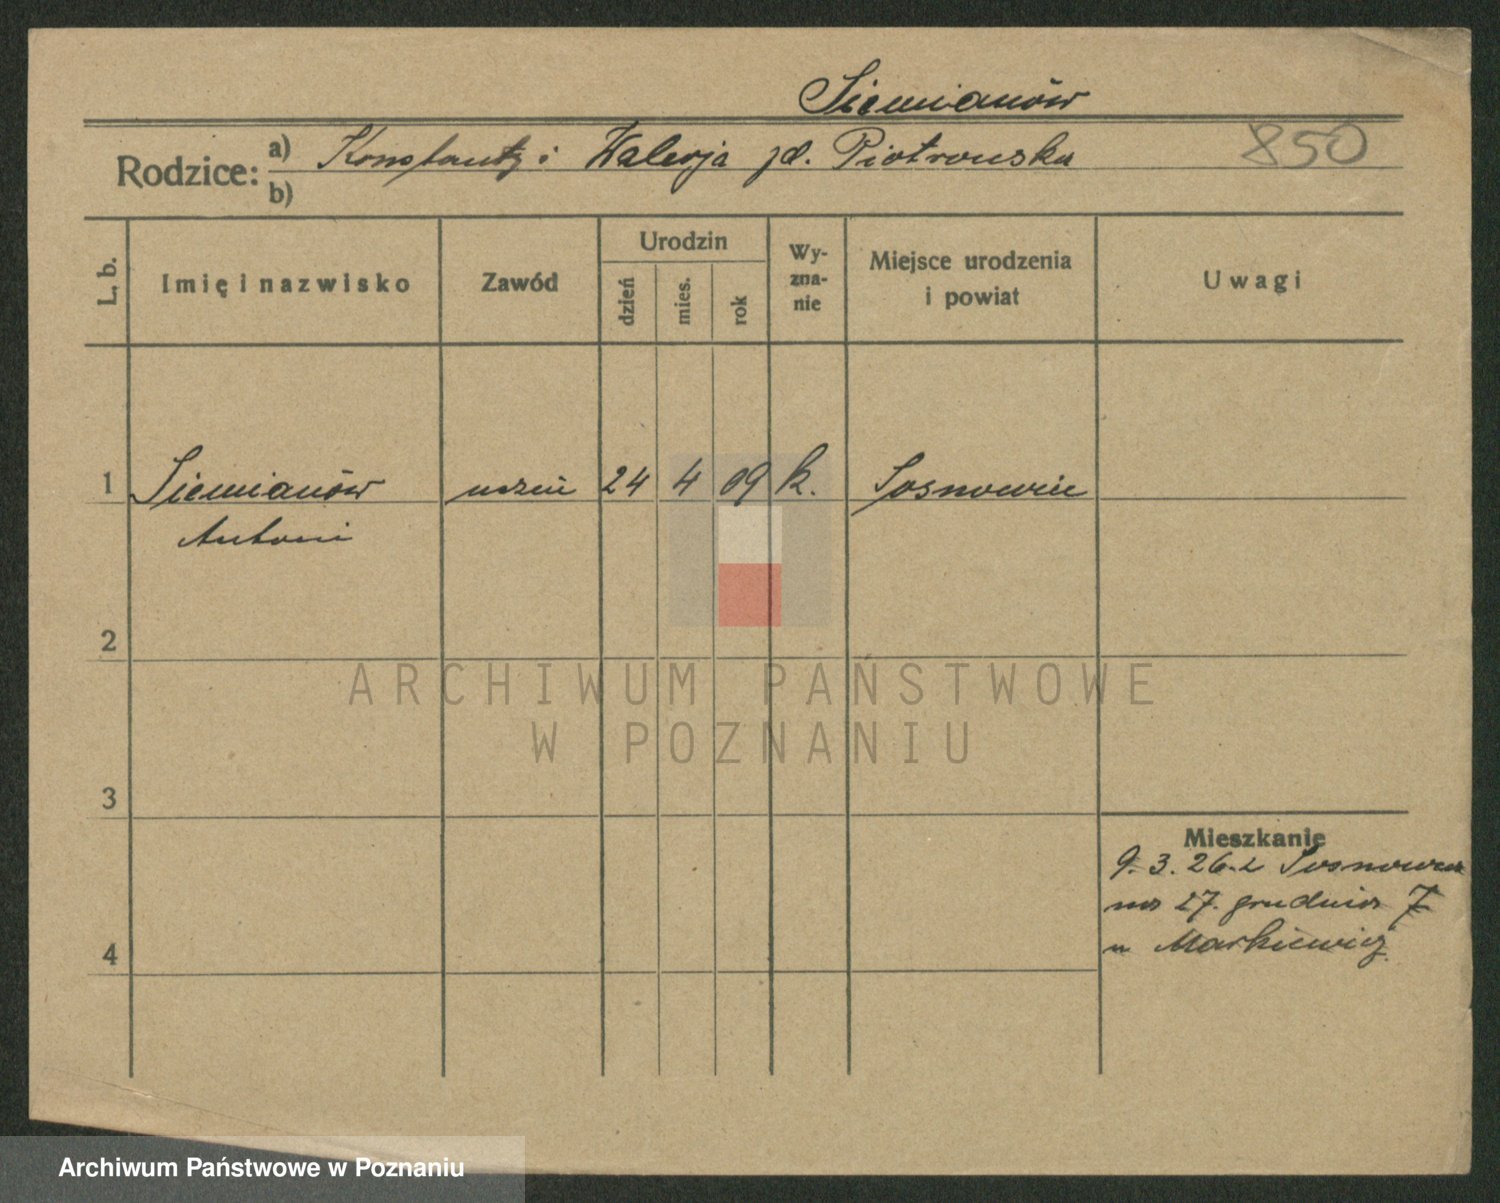 Siemianów
Rodzice: a) Konstanty i Walerja zd. Piotrowska 850
b)
L. b. Imię i nazwisko Zawód Urodzin dzień mies. rok Wy-zna-nie Miejsce urodzenia i powiat Uwagi
1 Siemianów uczeń 24 4 09 k. Sosnowiec
Antoni
2
ARCHIWUM PAŃSTWOWE
W POZNANIU
3
Mieszkanie
9. 3. 26. z Sosnowca
na 27. grudnia 7
u Markiewicz
4
Archiwum Państwowe w Poznaniu